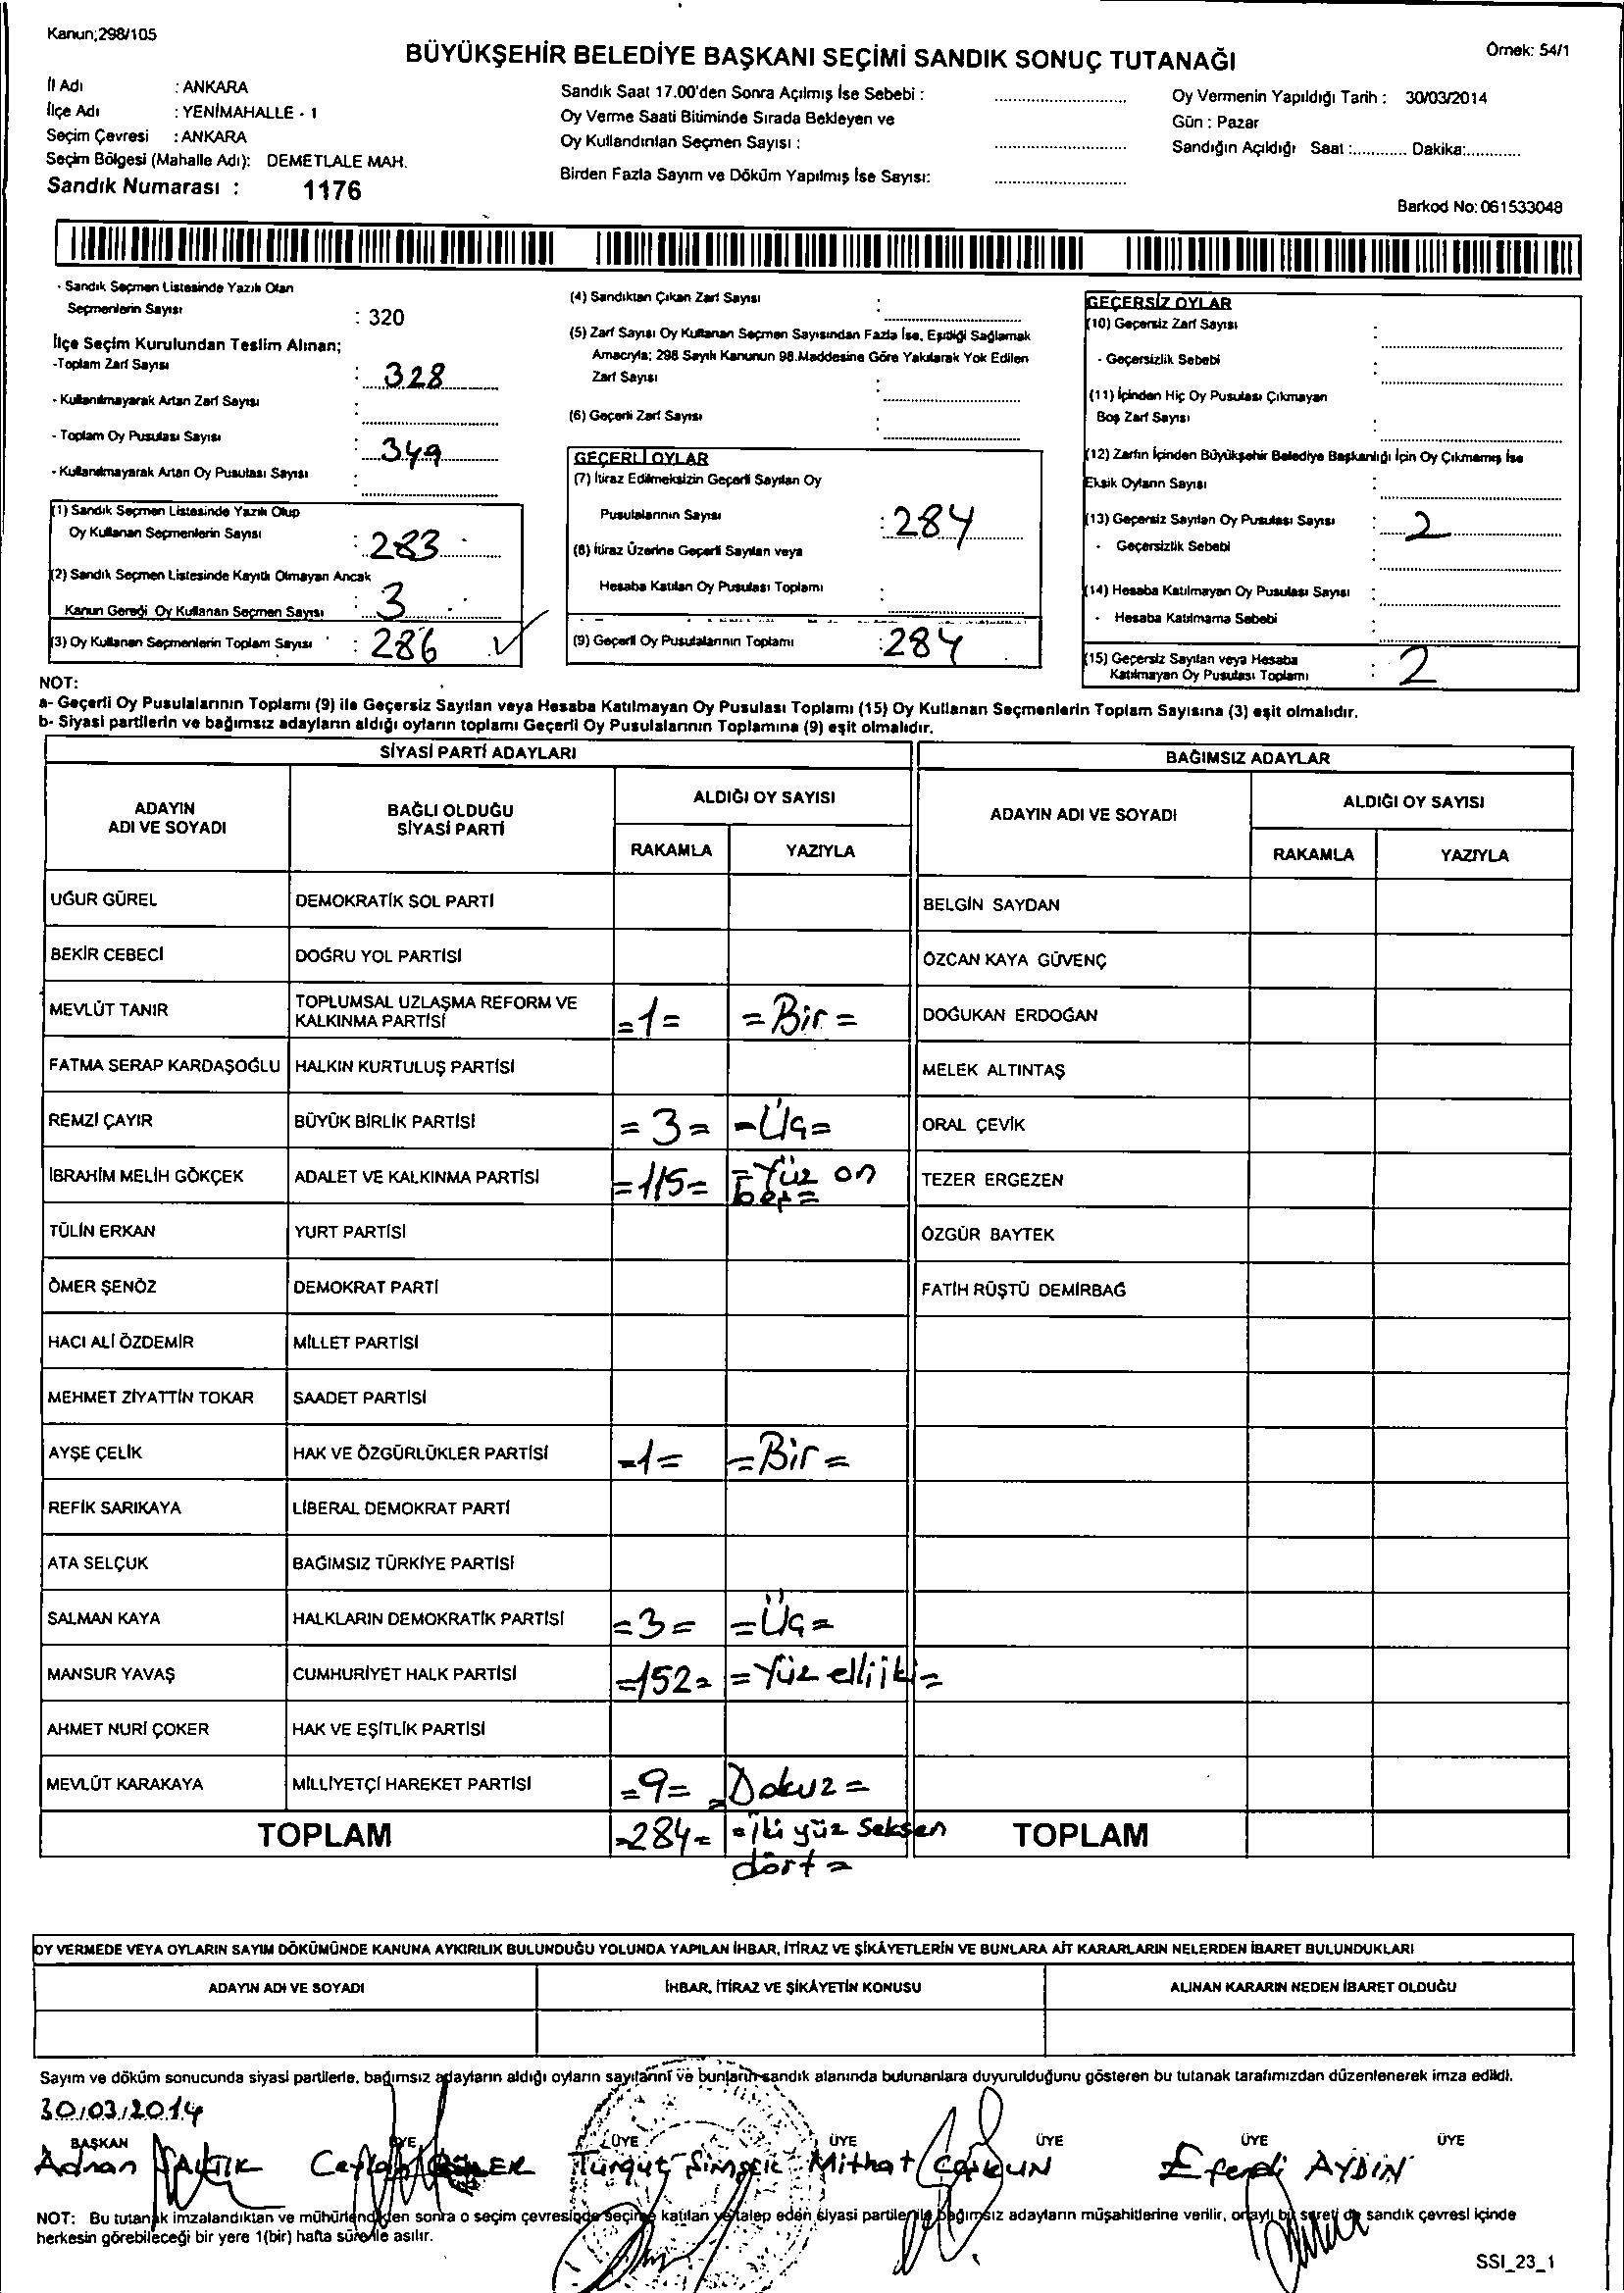 Kanun;298/105
BÜYÜKŞEHİR BELEDİYE BAŞKANI SEÇİMİ SANDIK SONUÇ TUTANAĞI
Örnek: 54/1
İl Adı : ANKARA
İlçe Adı : YENİMAHALLE - 1
Seçim Çevresi : ANKARA
Seçim Bölgesi (Mahalle Adı): DEMETLALE MAH.
Sandık Numarası : 1176
Sandık Saat 17.00'den Sonra Açılmış İse Sebebi :
Oy Verme Saati Bitiminde Sırada Bekleyen ve
Oy Kullandırılan Seçmen Sayısı :
Birden Fazla Sayım ve Döküm Yapılmış İse Sayısı:
Oy Vermenin Yapıldığı Tarih : 30/03/2014
Gün : Pazar
Sandığın Açıldığı Saat :............ Dakika:............
Barkod No: 061533048
- Sandık Seçmen Listesinde Yazılı Olan
Seçmenlerin Sayısı : 320
İlçe Seçim Kurulundan Teslim Alınan;
-Toplam Zarf Sayısı : 328
- Kullanılmayarak Artan Zarf Sayısı :
- Toplam Oy Pusulası Sayısı : 349
- Kullanılmayarak Artan Oy Pusulası Sayısı :
(1) Sandık Seçmen Listesinde Yazılı Olup
Oy Kullanan Seçmenlerin Sayısı : 283
(2) Sandık Seçmen Listesinde Kayıtlı Olmayan Ancak
Kanun Gereği Oy Kullanan Seçmen Sayısı : 3
(3) Oy Kullanan Seçmenlerin Toplam Sayısı : 286
(4) Sandıktan Çıkan Zarf Sayısı :
(5) Zarf Sayısı Oy Kullanan Seçmen Sayısından Fazla İse, Eşitliği Sağlamak
Amacıyla; 298 Sayılı Kanunun 98.Maddesine Göre Yakılarak Yok Edilen
Zarf Sayısı :
(6) Geçerli Zarf Sayısı :
GEÇERLİ OYLAR
(7) İtiraz Edilmeksizin Geçerli Sayılan Oy
Pusulalarının Sayısı : 284
(8) İtiraz Üzerine Geçerli Sayılan veya
Hesaba Katılan Oy Pusulası Toplamı :
(9) Geçerli Oy Pusulalarının Toplamı : 284
GEÇERSİZ OYLAR
(10) Geçersiz Zarf Sayısı :
- Geçersizlik Sebebi :
(11) İçinden Hiç Oy Pusulası Çıkmayan
Boş Zarf Sayısı :
(12) Zarfın İçinden Büyükşehir Belediye Başkanlığı İçin Oy Çıkmamış İse
Eksik Oyların Sayısı :
(13) Geçersiz Sayılan Oy Pusulası Sayısı : 2
- Geçersizlik Sebebi :
(14) Hesaba Katılmayan Oy Pusulası Sayısı :
- Hesaba Katılmama Sebebi :
(15) Geçersiz Sayılan veya Hesaba
Katılmayan Oy Pusulası Toplamı : 2
NOT:
a- Geçerli Oy Pusulalarının Toplamı (9) ile Geçersiz Sayılan veya Hesaba Katılmayan Oy Pusulası Toplamı (15) Oy Kullanan Seçmenlerin Toplam Sayısına (3) eşit olmalıdır.
b- Siyasi partilerin ve bağımsız adayların aldığı oyların toplamı Geçerli Oy Pusulalarının Toplamına (9) eşit olmalıdır.
SİYASİ PARTİ ADAYLARI
BAĞIMSIZ ADAYLAR
ADAYIN ADI VE SOYADI
BAĞLI OLDUĞU SİYASİ PARTİ
ALDIĞI OY SAYISI
RAKAMLA YAZIYLA
ADAYIN ADI VE SOYADI
ALDIĞI OY SAYISI
RAKAMLA YAZIYLA
UĞUR GÜREL DEMOKRATİK SOL PARTİ BELGİN SAYDAN
BEKİR CEBECİ DOĞRU YOL PARTİSİ ÖZCAN KAYA GÜVENÇ
MEVLÜT TANIR TOPLUMSAL UZLAŞMA REFORM VE KALKINMA PARTİSİ =1= =Bir= DOĞUKAN ERDOĞAN
FATMA SERAP KARDAŞOĞLU HALKIN KURTULUŞ PARTİSİ MELEK ALTINTAŞ
REMZİ ÇAYIR BÜYÜK BİRLİK PARTİSİ =3= =Üç= ORAL ÇEVİK
İBRAHİM MELİH GÖKÇEK ADALET VE KALKINMA PARTİSİ =115= =Yüz on beş= TEZER ERGEZEN
TÜLİN ERKAN YURT PARTİSİ ÖZGÜR BAYTEK
ÖMER ŞENÖZ DEMOKRAT PARTİ FATİH RÜŞTÜ DEMİRBAĞ
HACI ALİ ÖZDEMİR MİLLET PARTİSİ
MEHMET ZİYATTİN TOKAR SAADET PARTİSİ
AYŞE ÇELİK HAK VE ÖZGÜRLÜKLER PARTİSİ =1= =Bir=
REFİK SARIKAYA LİBERAL DEMOKRAT PARTİ
ATA SELÇUK BAĞIMSIZ TÜRKİYE PARTİSİ
SALMAN KAYA HALKLARIN DEMOKRATİK PARTİSİ =3= =Üç=
MANSUR YAVAŞ CUMHURİYET HALK PARTİSİ =152= =Yüz elli iki=
AHMET NURİ ÇOKER HAK VE EŞİTLİK PARTİSİ
MEVLÜT KARAKAYA MİLLİYETÇİ HAREKET PARTİSİ =9= =Dokuz=
TOPLAM =284= =iki yüz Seksen dört= TOPLAM
OY VERMEDE VEYA OYLARIN SAYIM DÖKÜMÜNDE KANUNA AYKIRILIK BULUNDUĞU YOLUNDA YAPILAN İHBAR, İTİRAZ VE ŞİKÂYETLERİN VE BUNLARA AİT KARARLARIN NELERDEN İBARET BULUNDUKLARI
ADAYIN ADI VE SOYADI İHBAR, İTİRAZ VE ŞİKÂYETİN KONUSU ALINAN KARARIN NEDEN İBARET OLDUĞU
Sayım ve döküm sonucunda siyasi partilerle, bağımsız adayların aldığı oyların sayılarını ve bunların sandık alanında bulunanlara duyurulduğunu gösteren bu tutanak tarafımızdan düzenlenerek imza edildi.
30/03/2014
BAŞKAN ÜYE ÜYE ÜYE ÜYE ÜYE ÜYE
Adnan Turgut Şimşek Mithat Efendi AYDIN
NOT: Bu tutanak imzalandıktan ve mühürlendikten sonra o seçim çevresinde seçime katılan ve talep eden siyasi partilerle bağımsız adayların müşahitlerine verilir, onaylı bir sureti de sandık çevresi içinde
herkesin görebileceği bir yere 1(bir) hafta süre ile asılır.
SSI_23_1